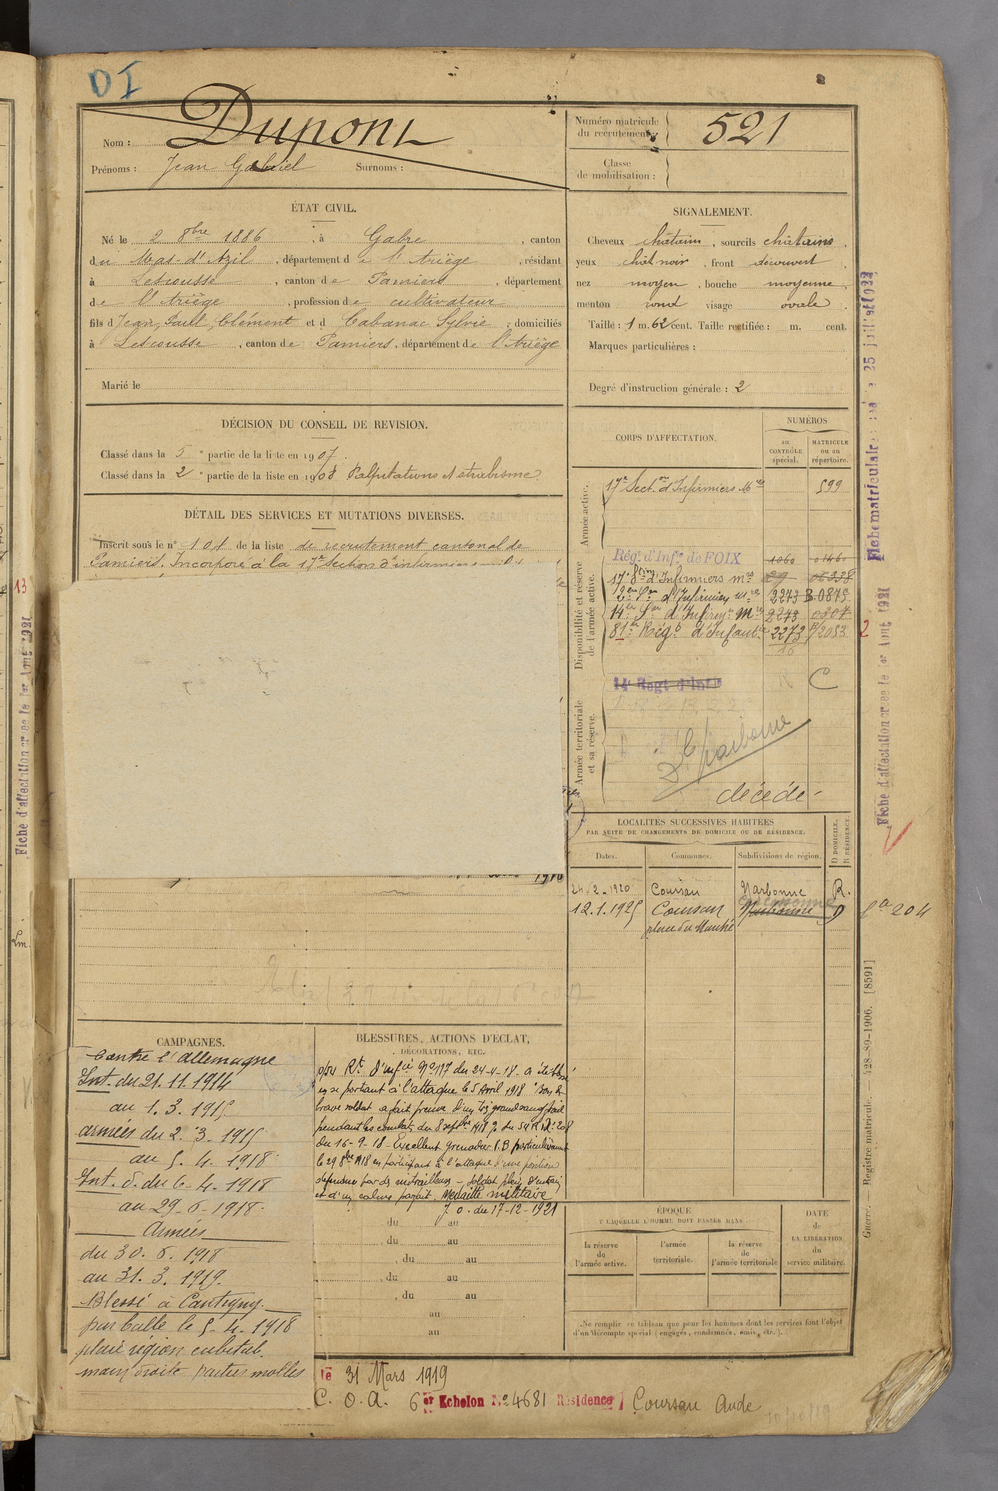 DI
Nom : Dupont
Prénoms : Jean Gabriel Surnoms :
Numéro matricule du recrutement : 521
Classe de mobilisation :
ÉTAT CIVIL.
Né le 2 8bre 1886, à Gabre, canton
du Mas-d'Azil, département de l'Ariège, résidant
à Lescousse, canton de Pamiers, département
de l'Ariège, profession de cultivateur
fils de Jean, Paul, Clément et d Cabanac Sylvie, domiciliés
à Lescousse, canton de Pamiers, département de l'Ariège
Marié le
SIGNALEMENT.
Cheveux châtains, sourcils châtains,
yeux chât noir, front découvert,
nez moyen, bouche moyenne,
menton rond visage ovale.
Taille : 1 m. 62 cent. Taille rectifiée : m. cent.
Marques particulières :
Degré d'instruction générale : 2
DÉCISION DU CONSEIL DE REVISION.
Classé dans la 5e partie de la liste en 1907.
Classé dans la 2e partie de la liste en 1908 Palpitations et strabisme
DÉTAIL DES SERVICES ET MUTATIONS DIVERSES.
Inscrit sous le n° 101 de la liste de recrutement cantonal de
Pamiers. Incorporé à la 17e Section d'infirmiers
CORPS D'AFFECTATION.
NUMÉROS
AU CONTRÔLE spécial.
MATRICULE ou au répertoire.
Armée active.
17e Sect.on d'Infirmiers Mres 599
Disponibilité et réserve de l'armée active.
Rég. d'Inf.ie de FOIX 1060
17e Son d'Infirmiers mres
12e Son d'Infirmiers mres 2273 B.0875
14e Son d'Infirmrs Mres 2273
81e Régt d'Infantie 2273
16
Armée territoriale et sa réserve.
14e Regt d'Infie C
Narbonne
décédé
LOCALITÉS SUCCESSIVES HABITÉES
PAR SUITE DE CHANGEMENTS DE DOMICILE OU DE RÉSIDENCE.
Dates. Communes. Subdivisions de région. D DOMICILE. R RÉSIDENCE.
24-2-1920 Coursan Narbonne R.
12.1.1925 Coursan Narbonne D
place du Marché
CAMPAGNES.
Contre l'Allemagne
Int. du 21.11.1914
au 1.3.1915
armées du 2.3.1915
au 5.4.1918
Int. d. du 6-4.1918
au 29.6-1918.
Armées
du 30.6.1918
au 31.3.1919.
Blessé à Cantigny
par balle le 5.4.1918
plaie région cubitale
main droite parties molles
BLESSURES, ACTIONS D'ÉCLAT,
DÉCORATIONS, ETC.
en se portant à l'attaque le 5 Avril 1918
brave soldat a fait preuve d'un très grand sang froid
pendant les combats du 8 septbre 1918
du 16-9-18 - Excellent grenadier
le 29 8bre 1918 en participant à l'attaque d'une position
défendue par des mitrailleuses - soldat plein d'entrain
et d'un calme parfait. Médaille militaire
J.O. du 17-12-1921
du au
du au
du au
du au
du au
au
au
ÉPOQUE
À LAQUELLE L'HOMME DOIT PASSER DANS
la réserve de l'armée active.
l'armée territoriale.
la réserve de l'armée territoriale
DATE de LA LIBÉRATION du service militaire.
Ne remplir ce tableau que pour les hommes dont les services font l'objet
d'un décompte spécial (engagés, condamnés, omis, etc.).
le 31 Mars 1919
C. O. A. 6er Echelon No 4681 Résidence Coursan Aude
Fiche matriculaire 25 juillet 1922
Fiche d'affectation créée le 1er Août 1921
204
Guerre. Registre matricule. — 428-89-1906. [8591]
13
Fiche d'affectation créée le 1er Août 1921